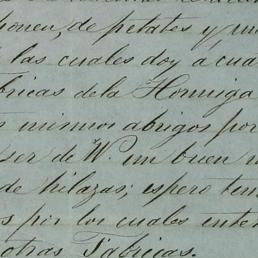 ponen, de petates y un
las cuales doy á cua
bricas de la Hormiga
mismos abrigos por
ser de V. un buen
de hilazas; espero ten
s por los cuales inter
otras Fabricas.